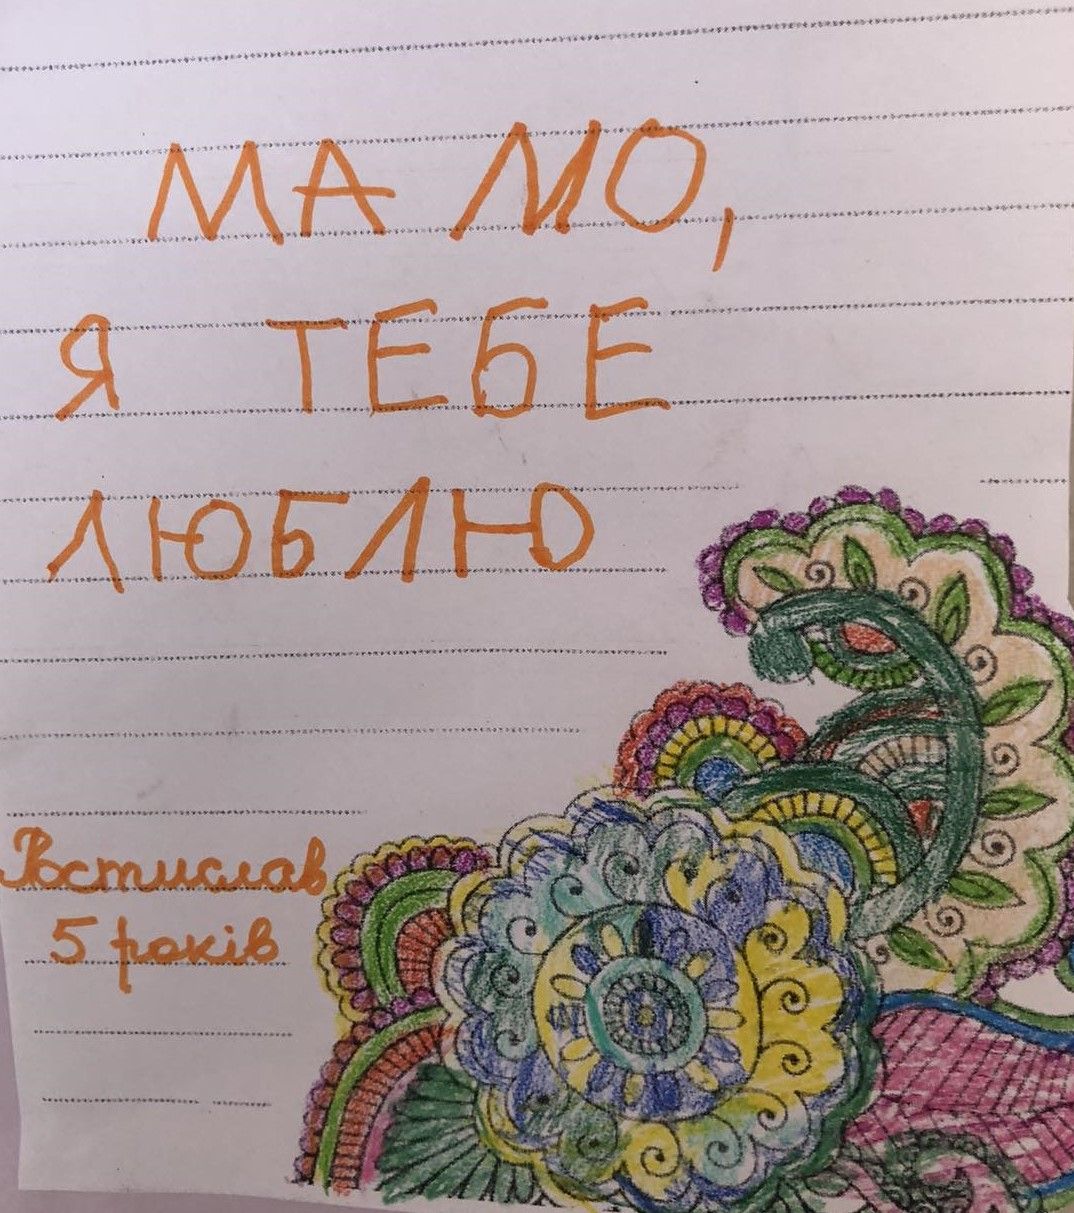 МАМО,
Я ТЕБЕ
ЛЮБЛЮ
Ростислав
5 років